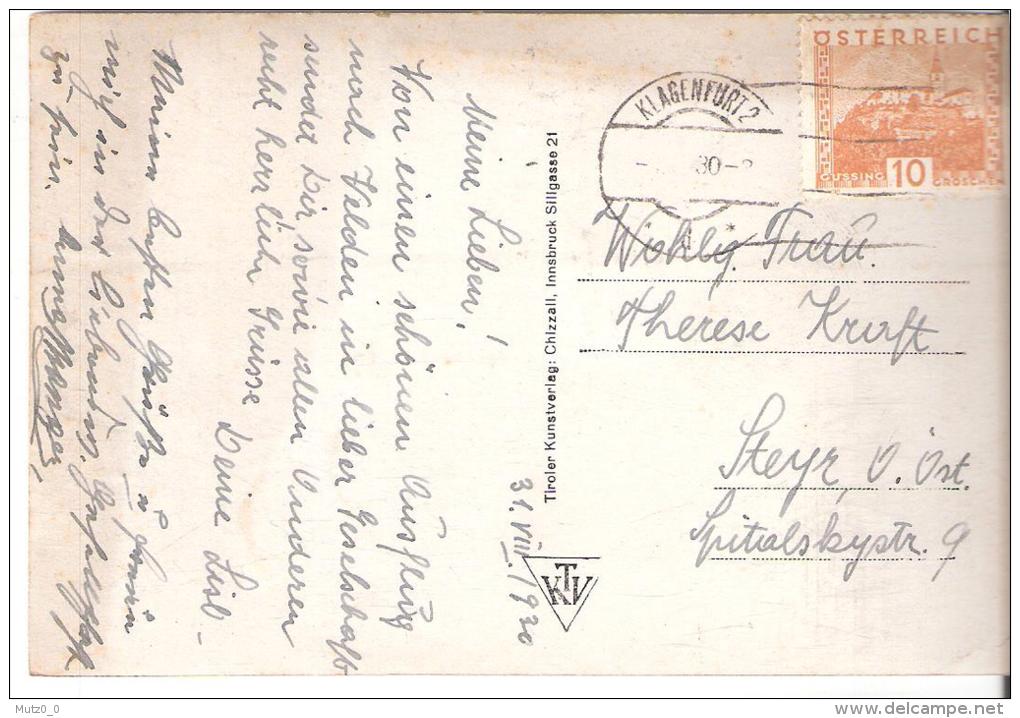 ÖSTERREICH
GÜSSING 10 GROSCHEN
KLAGENFURT 2
30-
Wohlg. Frau.
Therese Kraft
Steyr O. Öst.
Spitalskystr. 9
Tiroler Kunstverlag: Chizzali, Innsbruck Sillgasse 21
KTV
31. VIII. 1930
Meine Lieben!
Von einen schönen Ausflug
nach Velden in lieber Geselschaft
sendet Dir sowie allen Anderen
recht herrliche Grüsse
Deine Lisl-
Meine besten Grüße
mich in der Gesellschaft
zu sein.
Mutz0_0